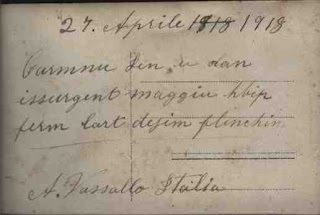 27. Aprile 1818 1918
Carmnu din, u dan
issurgent maggiu hbip
ferm cart dejjim flimchin
A. Vassallo Italia